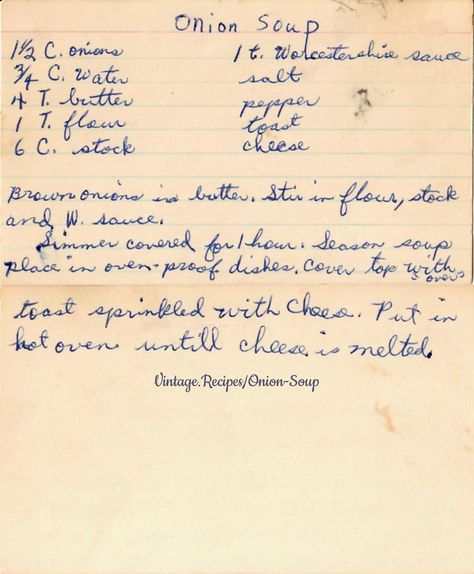 Onion Soup
1 1/2 C. onions
3/4 C. Water
4 T. butter
1 T. flour
6 C. stock
1 t. Worcestershire sauce
salt
pepper
toast
cheese
Brown onions in butter. Stir in flour, stock
and W. sauce.
Simmer covered for 1 hour. Season soup
place in oven-proof dishes. Cover top with
toast sprinkled with Cheese. Put in
hot oven untill cheese is melted.
Vintage.Recipes/Onion-Soup